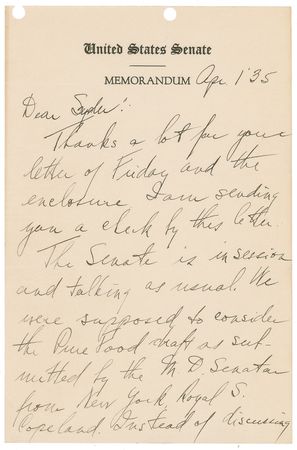 United States Senate
MEMORANDUM Apr 1 '35
Dear Snyder:
Thanks a lot for your
letter of Friday and the
enclosure I am sending
you a check by this letter.
The Senate is in session
and talking as usual. We
were supposed to consider
the Pure Food draft as sub-
mitted by the M.D. Senator
from New York, Royal S.
Copeland. Instead of discussing